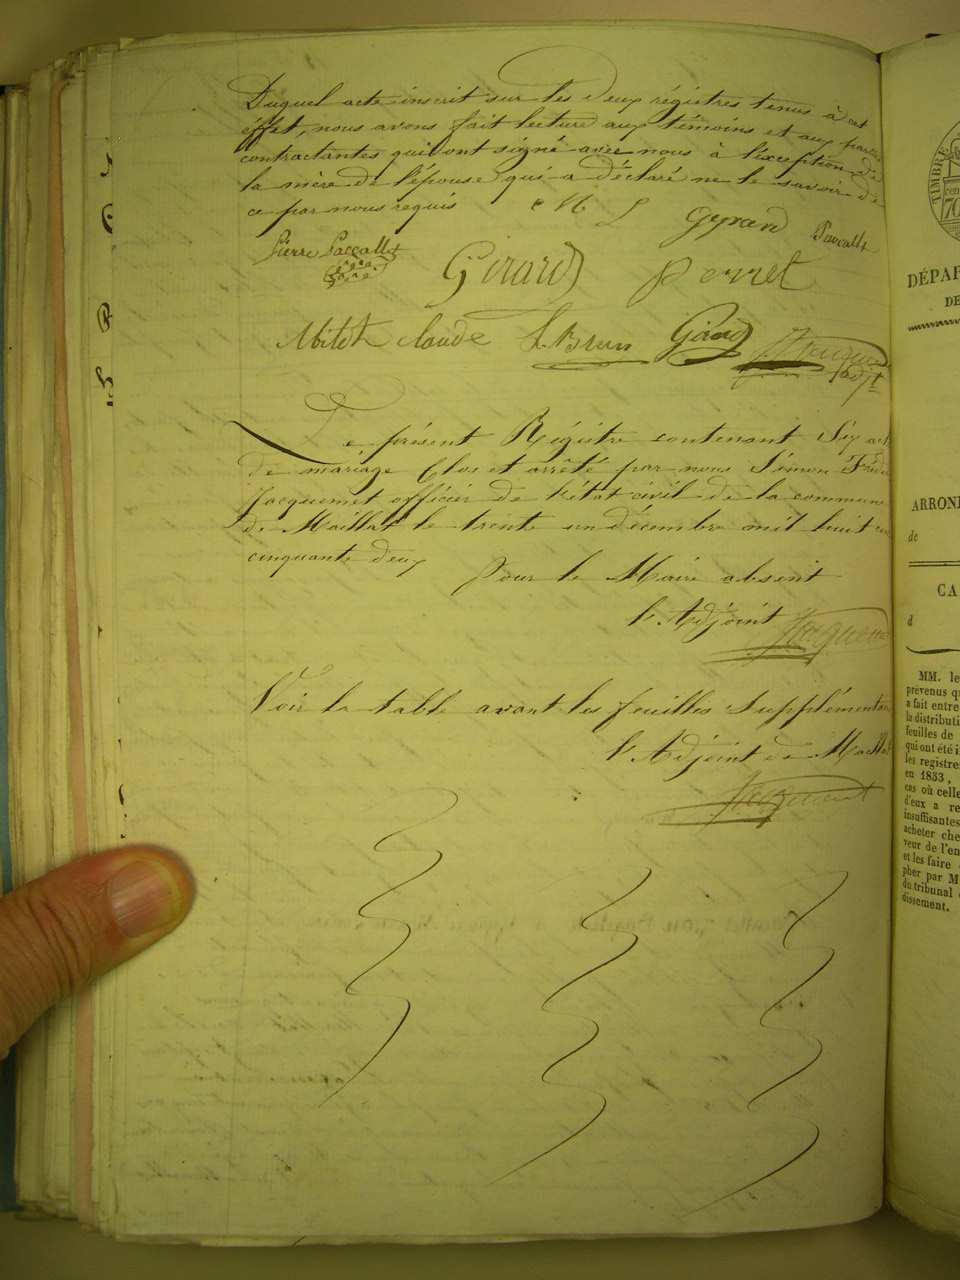 Duquel acte inscrit sur les deux régistres tenus à cet
éffet, nous avons fait lecture aux témoins et aux parties
contractantes qui ont signé avec nous à l'éxception de
la mère de l'épouse qui a déclaré ne le savoir de
ce par nous requis
Pierre Paccallet
Girard
perret
Milet claude
L. Brun
Girard
Le présent Régistre contenant Six act
de mariage Clos et arrêté par nous Simon
Jacquemet officier de l'état civil de la commune
de Maillat le trente un décembre mil huit cen
cinquante deux
pour le Maire absent
l'Adjoint Jacquemet
Voir la table avant les feuilles Supplémentai
l'Adjoint de Maillat
Jacquemet
TIMBRE
70
DÉPAR
DE
ARRONI
de
CA
d
MM. le
prévenus qu
a fait entre
la distributi
feuilles de
qui ont été i
les registre
en 1833,
cas où celle
d'eux a re
insuffisantes
acheter che
veur de l'en
et les faire
pher par M
du tribunal
dissement.